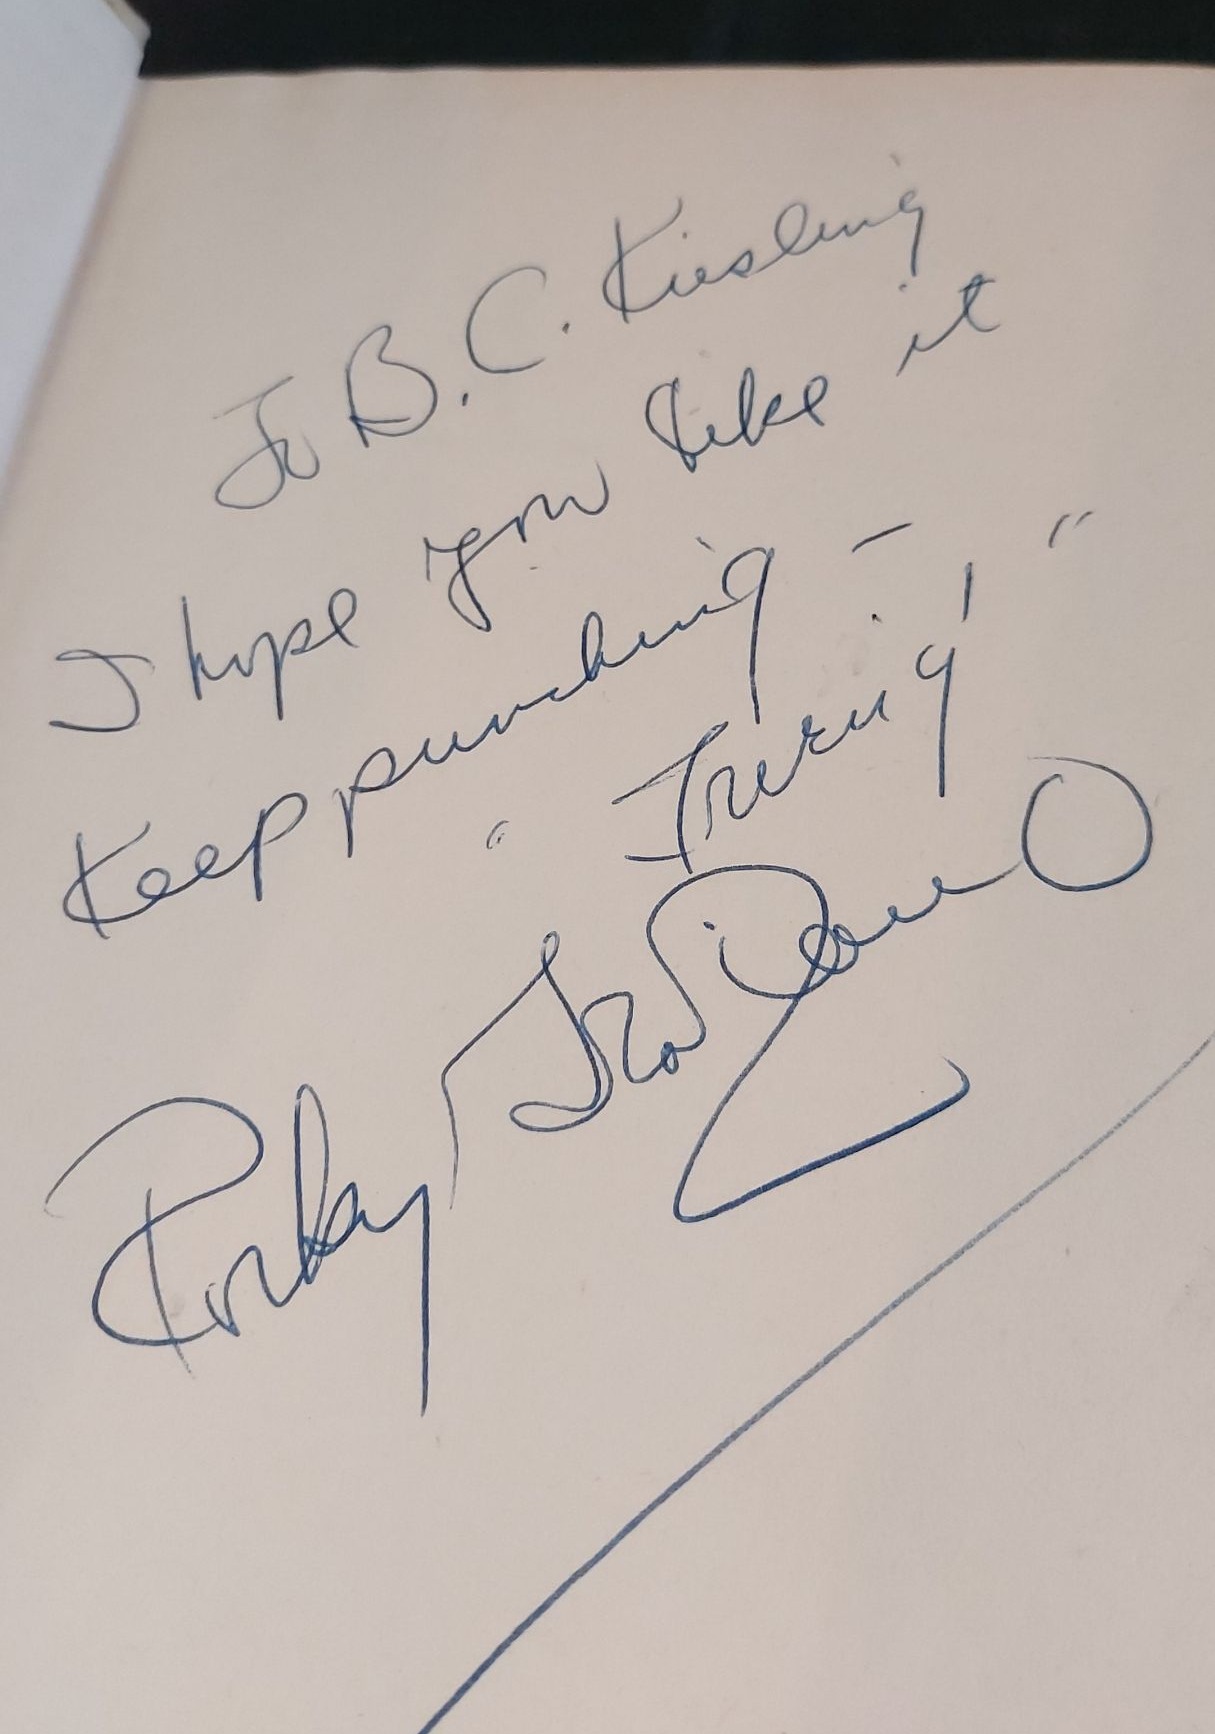 To B.C. Kiesling
I hope you like it
Keep punching -
Rocky Graziano